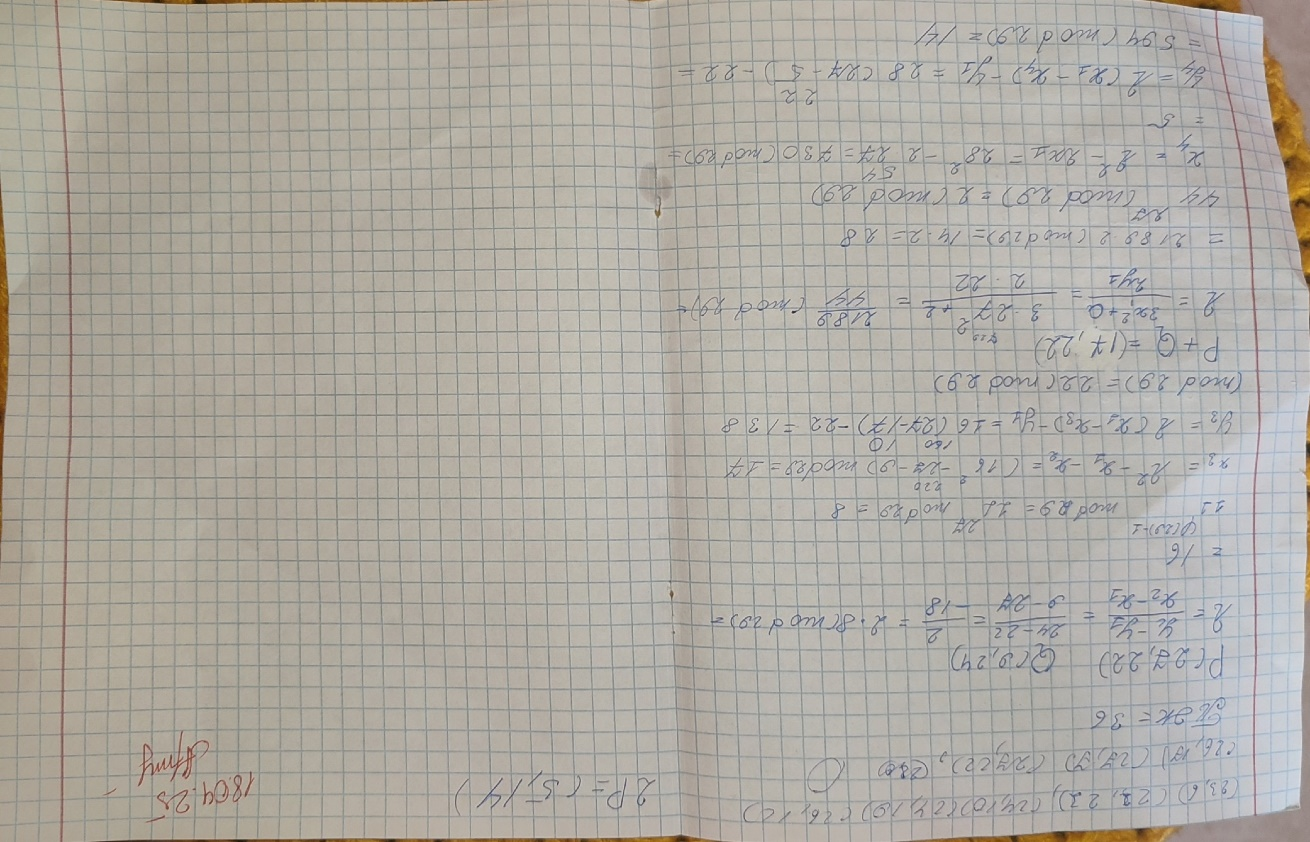 (23,6) (23,23), (24,10) (24,19) (26,12)
(26,17) (27,7) (27,22), O
ЭК = 36
P(27,22) Q(9,24)
λ = (y₂-y₁)/(x₂-x₁) = (24-22)/(9-27) = 2/-18 = 2·8(mod 29)=
= 16
11^(φ(29)-1) mod 29 = 11^27 mod 29 = 8
x₃ = λ² - x₁ - x₂ = (16² - 27 - 9) mod 29 = 17
220
y₃ = λ(x₁-x₃)-y₁ = 16(27-17)-22 = 138
160 10
(mod 29) = 22(mod 29)
P+Q = (17,22)
λ = (3x₁²+Q)/(2y₁) = (3·27²+2)/(2·22) = 2189/44 (mod 29)=
729
= 2189·2(mod 29)= 14·2= 28
44^27 (mod 29) = 2(mod 29)
x₄ = λ² - 2x₁ = 28² - 2·27 = 730(mod 29)=
54
= 5
y₄ = λ(x₁-x₄)-y₁ = 28(27-5)-22=
22
= 594(mod 29)= 14
2P = (5,14)
18.04.25